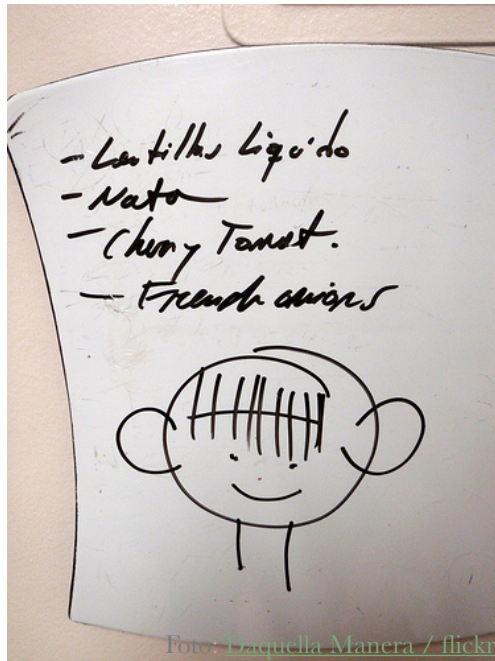 - Lentillas Líquido
- Nata
- Cherry Tomat.
- French onions
Foto: Daquella Manera / flickr